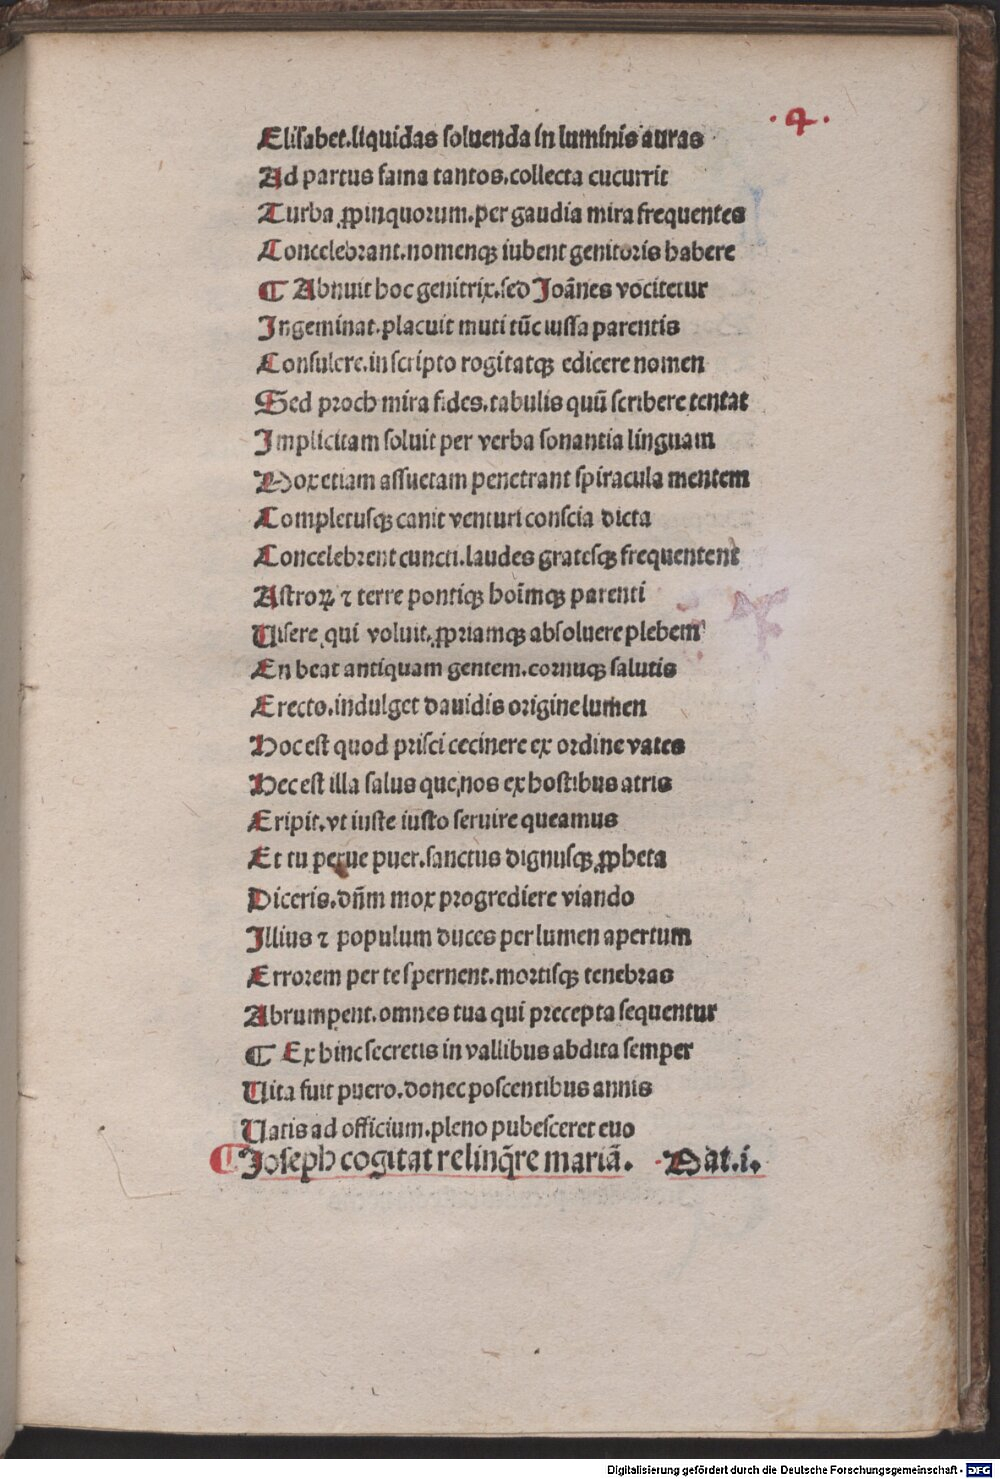 .4.
Elisabet.liquidas soluenda in luminis auras
Ad partus fama tantos.collecta cucurrit
Turba ꝓpinquorum.per gaudia mira frequentes
Concelebrant.nomenqꝫ iubent genitoris habere
¶ Abnuit hoc genitrix.sed Joãnes vocitetur
Ingeminat.placuit muti tũc iussa parentis
Consulere.in scripto rogitatqꝫ edicere nomen
Sed proch mira fides.tabulis quũ scribere tentat
Implicitam soluit per verba sonantia linguam
Mox etiam assuetam penetrant spiracula mentem
Completusqꝫ canit venturi conscia dicta
Concelebrent cuncti.laudes gratesqꝫ frequentent
Astroꝝ ⁊ terre pontiqꝫ hoĩmqꝫ parenti
Uisere qui voluit.ꝓpriamqꝫ absoluere plebem
En beat antiquam gentem.cornuqꝫ salutis
Erecto.indulget dauidis origine lumen
Hoc est quod prisci cecinere ex ordine vates
Hec est illa salus que nos ex hostibus atris
Eripit.vt iuste iusto seruire queamus
Et tu perue puer.sanctus dignusqꝫ ꝓpheta
Diceris.dñm mox progrediere viando
Illius ⁊ populum duces per lumen apertum
Errorem per te spernent.mortisqꝫ tenebras
Abrumpent.omnes tua qui precepta sequentur
¶ Ex hinc secretis in vallibus abdita semper
Uita fuit puero.donec poscentibus annis
Uatis ad officium.pleno pubesceret euo
¶ Joseph cogitat relinq̃re mariã. Mat.i.
Digitalisierung gefördert durch die Deutsche Forschungsgemeinschaft - DFG